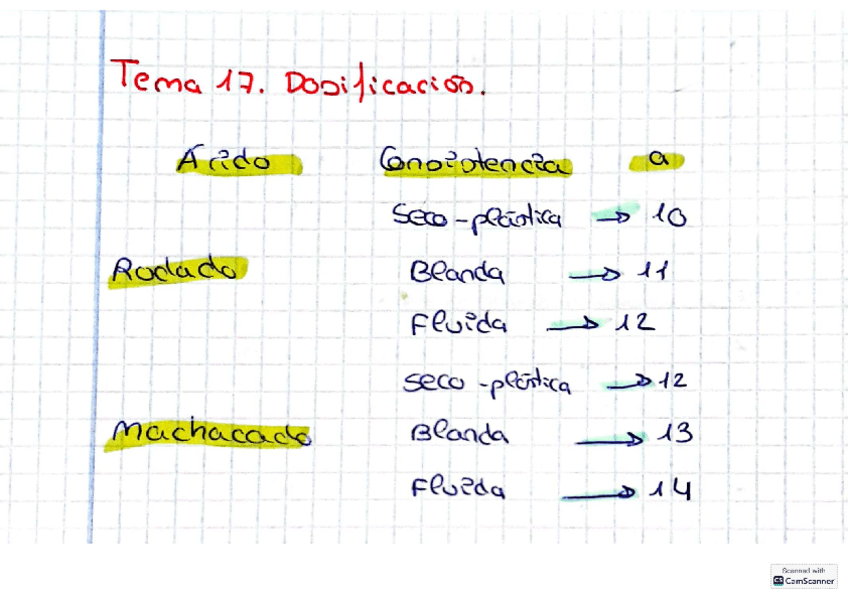 Tema 17. Dosificación.
Árido Consistencia a
Seco-plástica → 10
Rodado Blanda → 11
Fluida → 12
Seco-plástica → 12
Machacado Blanda → 13
Fluida → 14
Scanned with
CS CamScanner